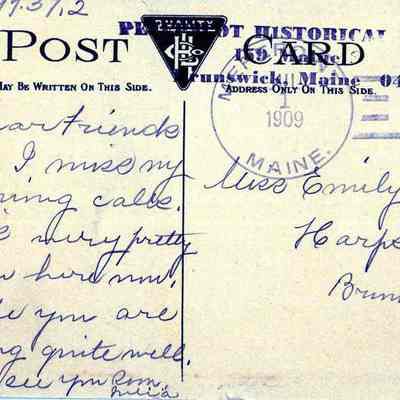 97.37.2
POST CARD
QUALITY
PEJEPSCOT HISTORICAL
159 Maine
Brunswick, Maine 04
MAY BE WRITTEN ON THIS SIDE.
ADDRESS ONLY ON THIS SIDE.
1
1909
MAINE.
ear Friends
I miss my
ning calls.
very pretty
here now.
you are
ng quite well.
see you
Miss Emily
Harps
Brun